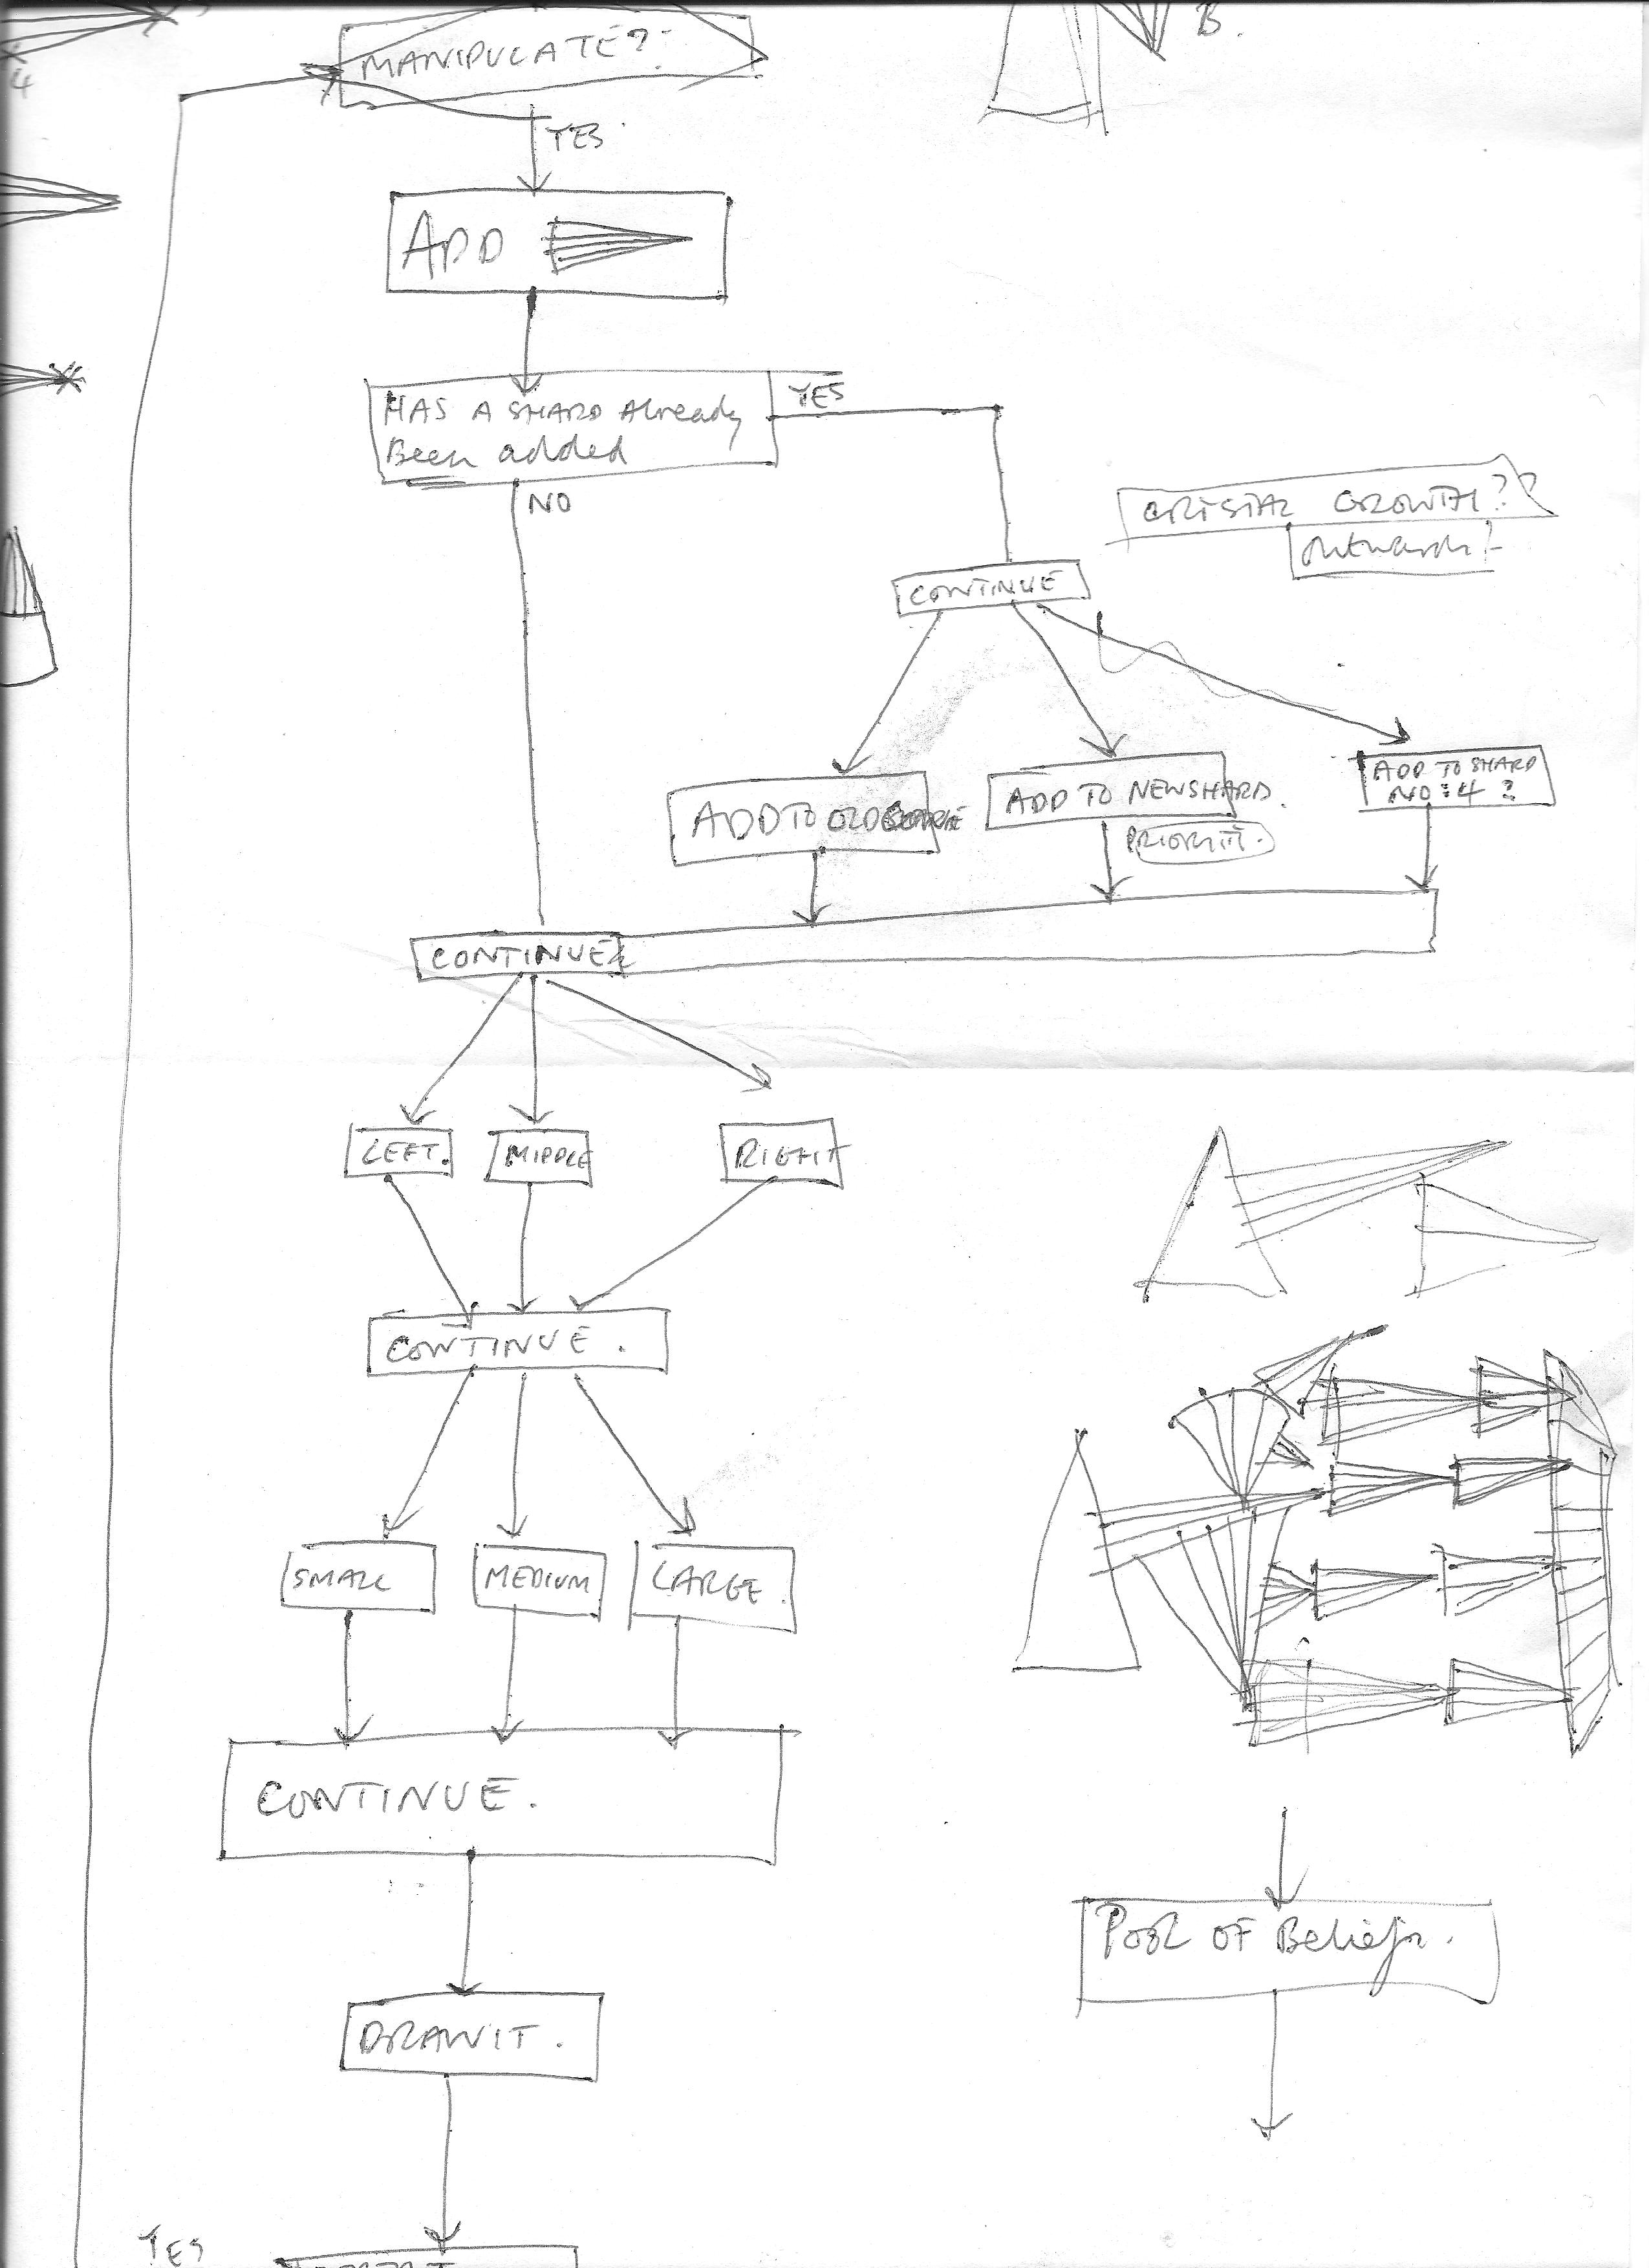 4
B.
MANIPULATE?
YES
ADD
HAS A SHARD Already
Been added
YES
NO
GROWTH??
CONTINUE
ADD TO OLD
ADD TO NEWSHARD.
PRIORITY.
ADD TO SHARD
NO:4?
CONTINUE
LEFT.
MIDDLE
RIGHT
CONTINUE.
SMALL
MEDIUM
LARGE.
CONTINUE.
POOL OF Beliefs.
DRAW IT.
YES